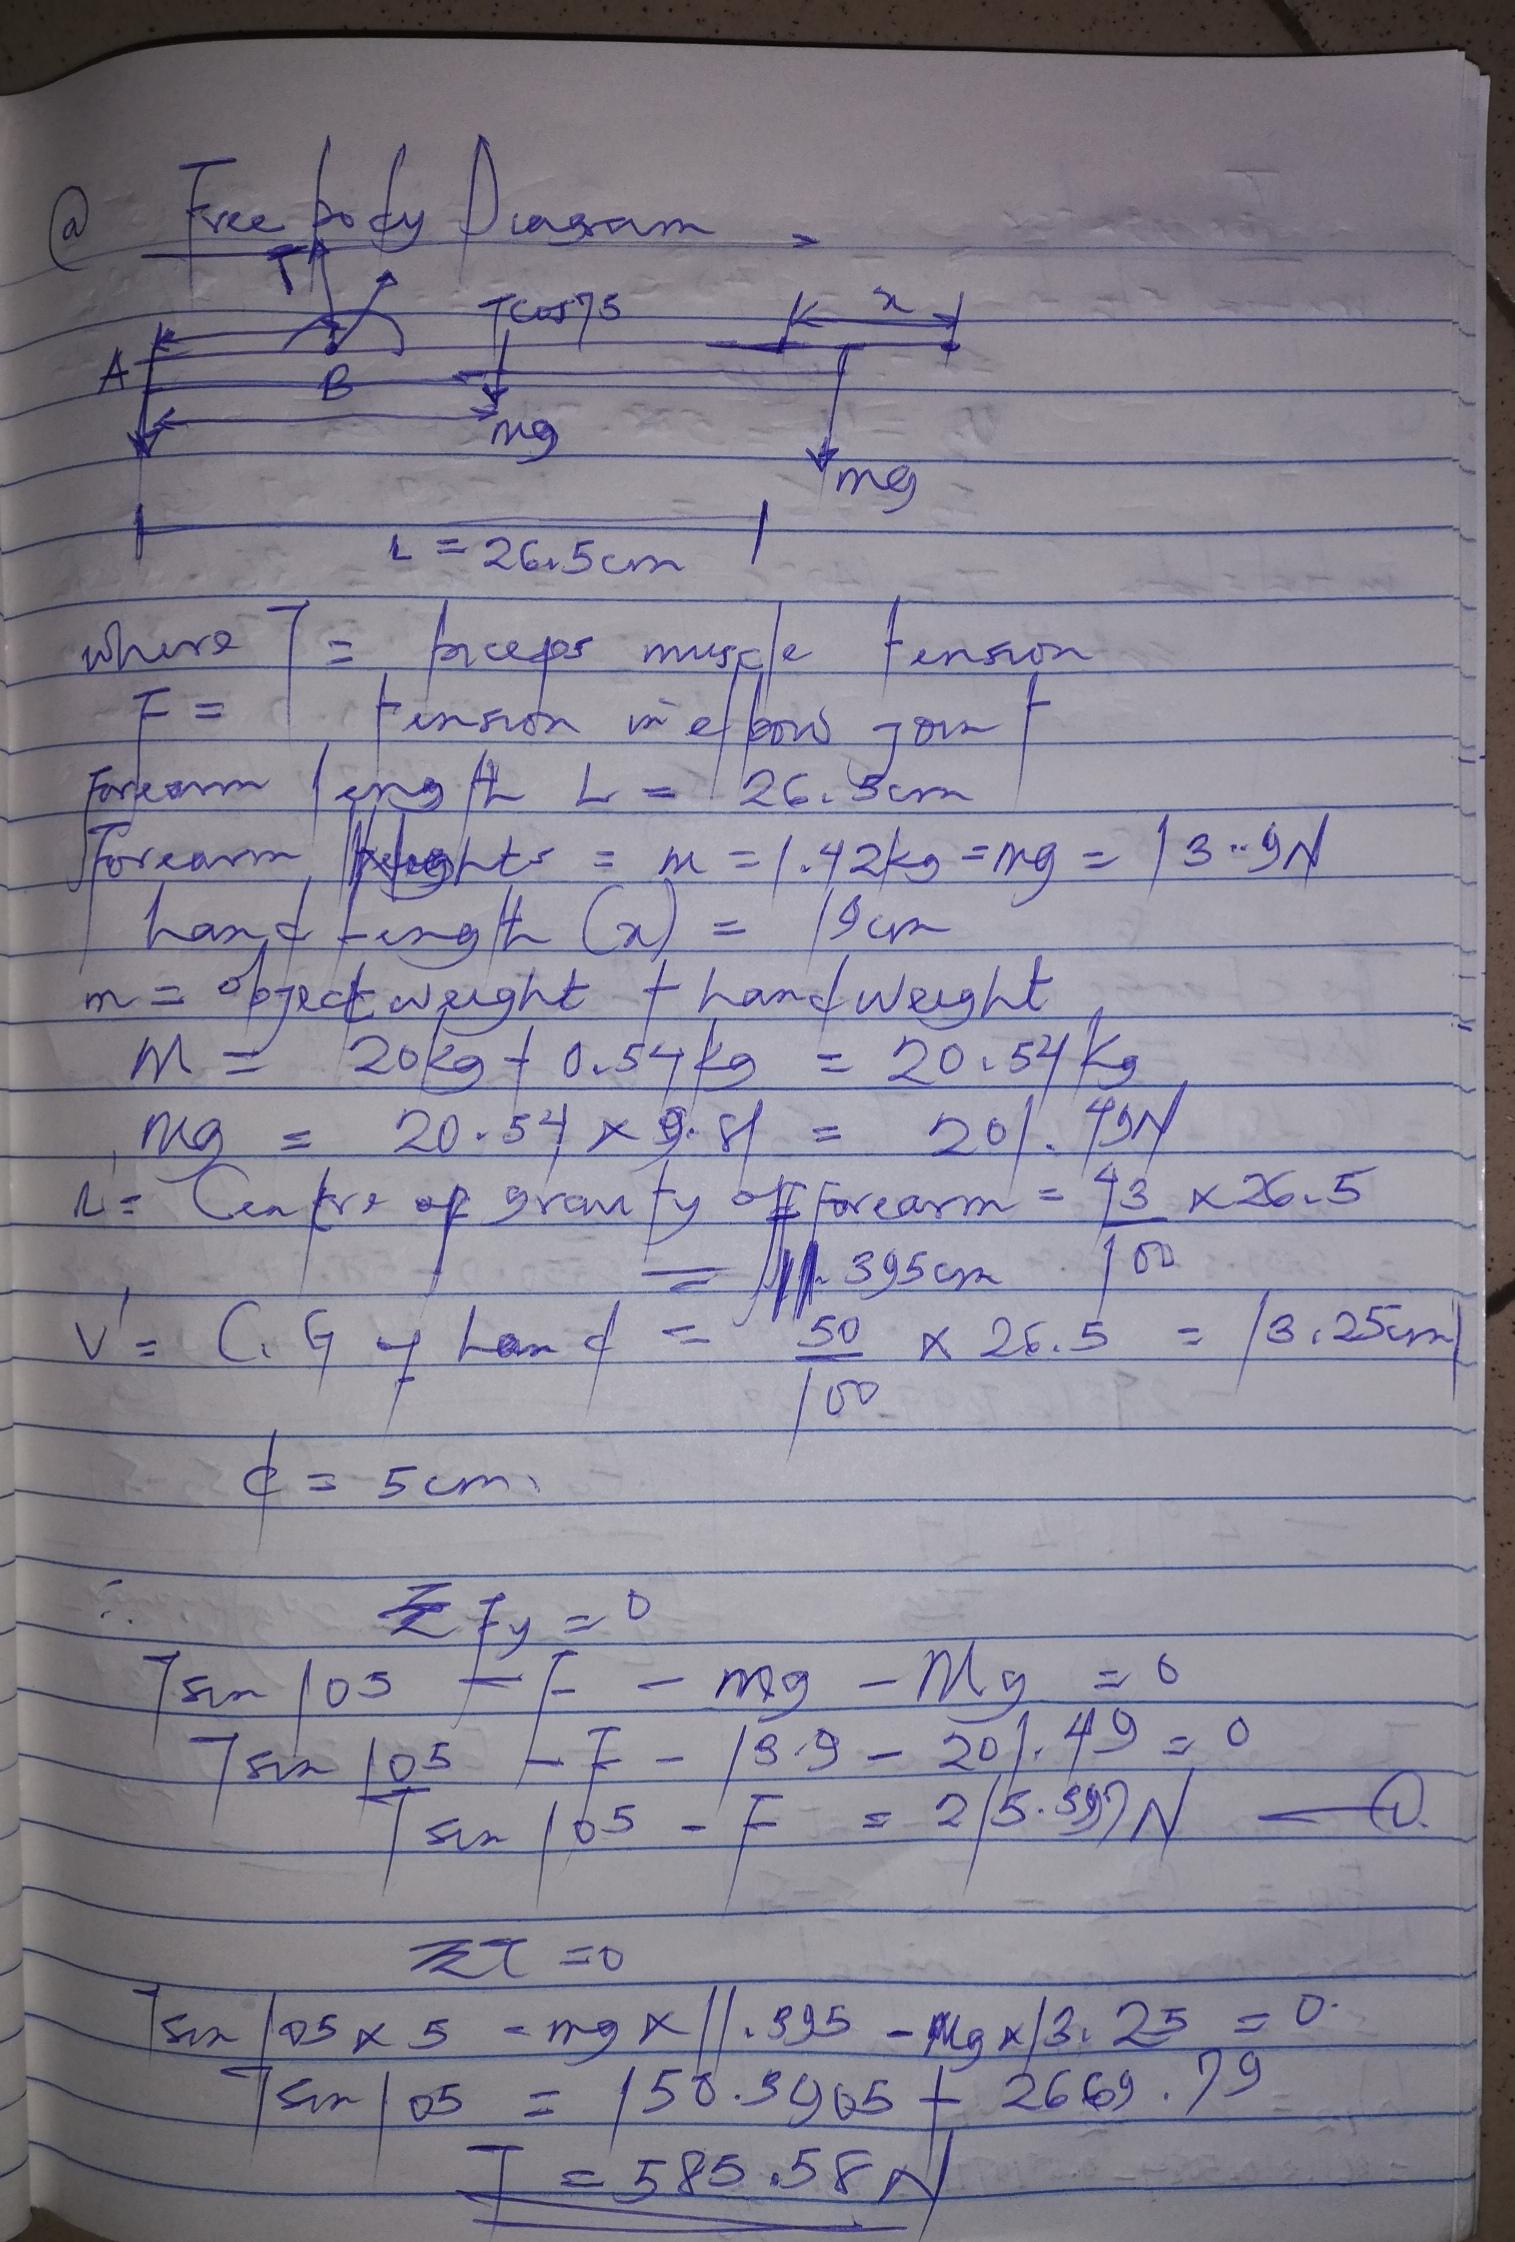 (a) Free body Diagram
T
Tcos75
x
A
B
mg
mg
L = 26.5cm
where T = biceps muscle tension
F = tension in elbow joint
Forearm length L = 26.5cm
Forearm Weights = m = 1.42kg = mg = 13.9N
hand length (x) = 19cm
m = object weight + hand weight
M = 20kg + 0.54kg = 20.54kg
Mg = 20.54 x 9.81 = 201.49N
L = Centre of gravity of Forearm = 43/100 x 26.5
= 11.395cm
V' = C.G of hand = 50/100 x 26.5 = 13.25cm
d = 5cm.
∴ ΣFy = 0
Tsin105 - F - mg - Mg = 0
Tsin105 - F - 13.9 - 201.49 = 0
Tsin105 - F = 215.397N — (1)
Στ = 0
Tsin105 x 5 - mg x 11.395 - Mg x 13.25 = 0.
Tsin105 = 158.3905 + 2669.79
T = 585.58N